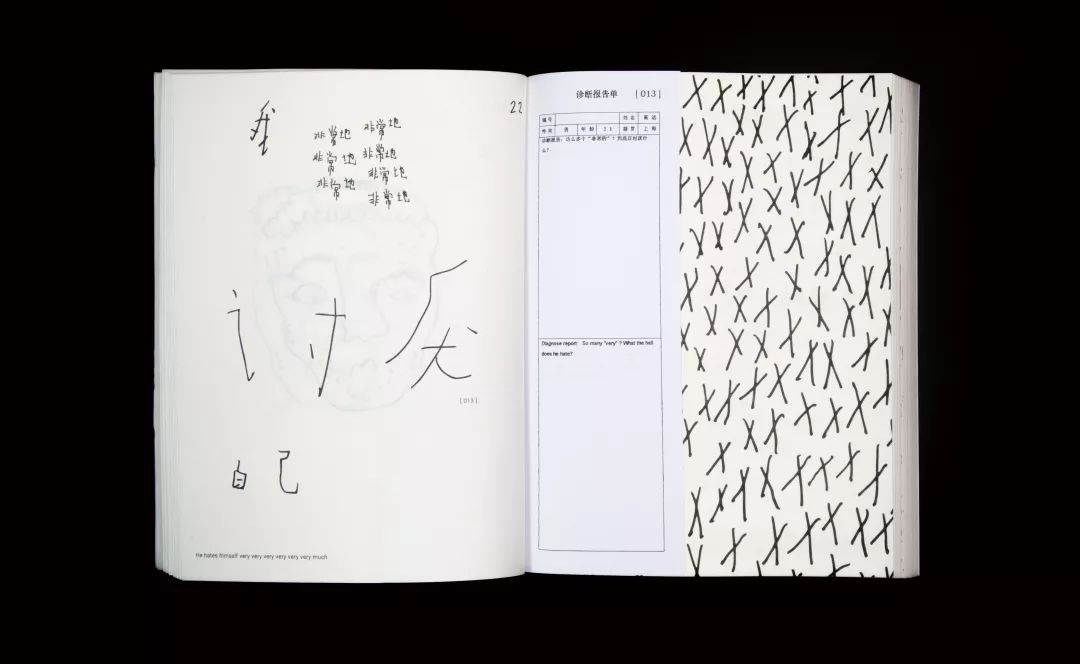 22
我
非常地 非常地
非常地 非常地
非常地 非常地
非常地
讨厌
[013]
自己
He hates himself very very very very very very much
诊断报告单 [013]
编号 姓名
男 年龄 21 籍贯 上海
诊断报告: 这么多个
么?
Diagnose report: So many "very" ? What the hell
does he hate?